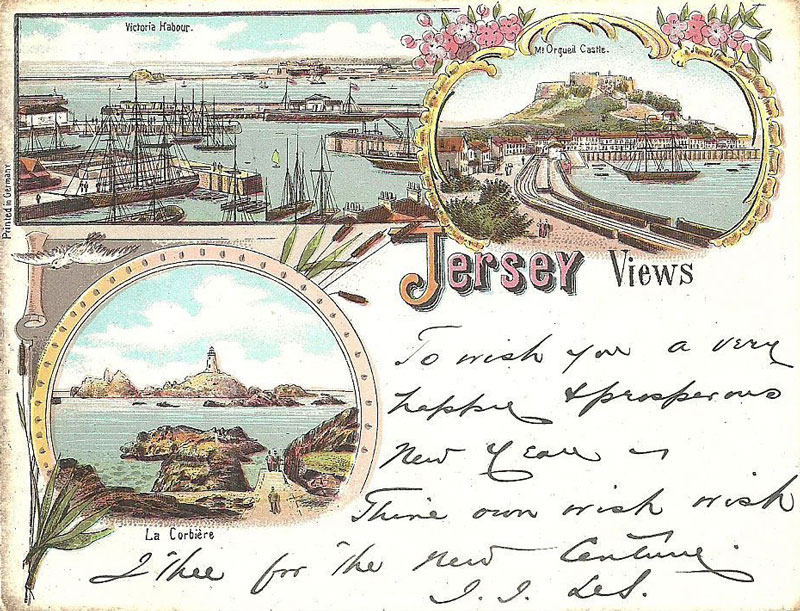 Victoria Habour.
Mt Orgueil Castle.
Printed in Germany
Jersey Views
La Corbière
To wish you a very
happy & prosperous
New Year ~
Thine own wish wish
I thee for the new Century.
LeS.